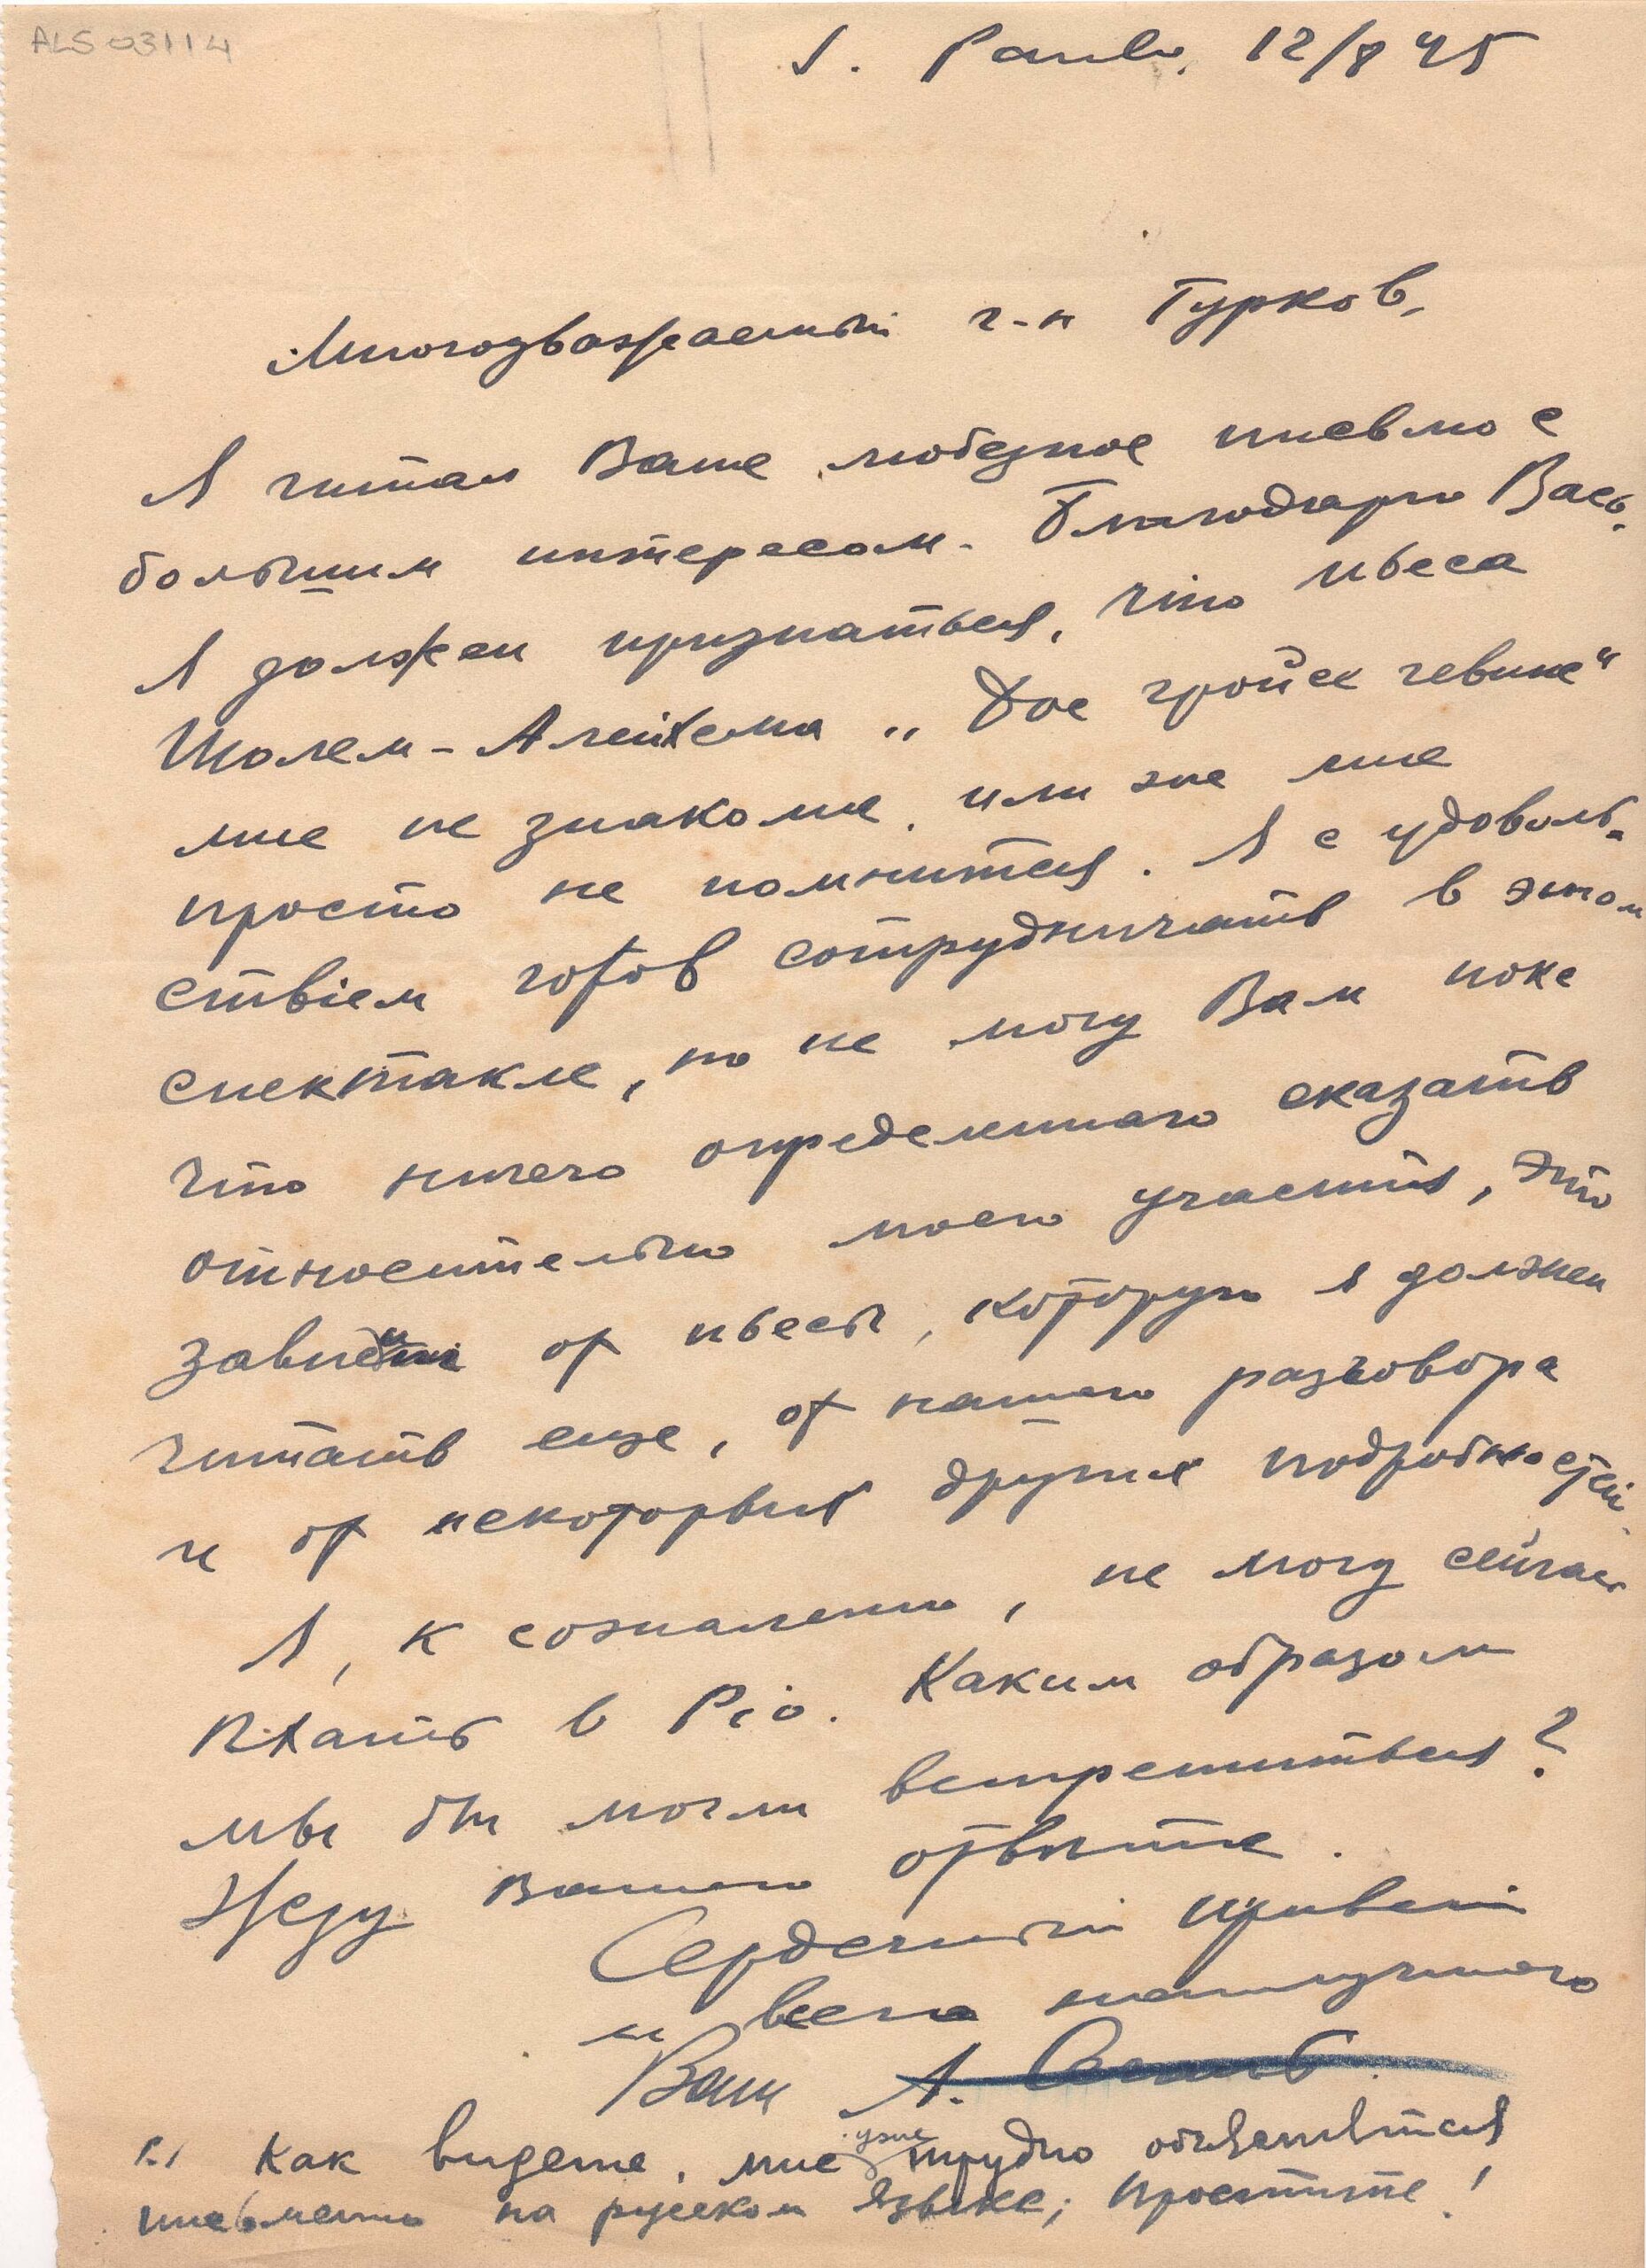 ALS 03114
S. Paulo, 12/8 45
Многоуважаемый г-н Турков,
Я читал Ваше любезное письмо с
большим интересом. Благодарю Вась.
Я должен признаться, что пьеса
Шолем-Алейхема „Дос гройсе гевине"
мне не знакома, или же мне
просто не помнится. Я с удоволь-
ствіем готов сотрудничать в этом
спектакле, но не могу Вам пока
что ничего определеннаго сказать
относительно моего участия, это
зависит от пьесы, которую я должен
читать еще, от нашего разговора
и от некоторых других подробностей.
Я, к сожалению, не могу сейчас
ехать в Ріо. Каким образом
мы бы могли встретиться?
Жду Вашего отвѣта.
Сердечный привет
и всего наилучшаго
Ваш А.
P.S Как видете, мне уже трудно объясняться
письменно на русском языке; простите!